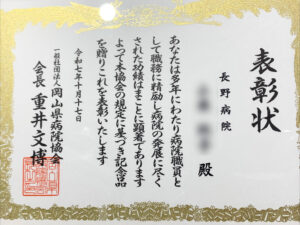 表彰状
長野病院
殿
あなたは多年にわたり病院職員と
して職務に精励し病院の発展に尽く
された功績はまことに顕著であります
よって本協会の規定に基づき記念品
を贈りこれを表彰いたします
令和七年十月十七日
一般社団法人
岡山県病院協会
会長 重井文博